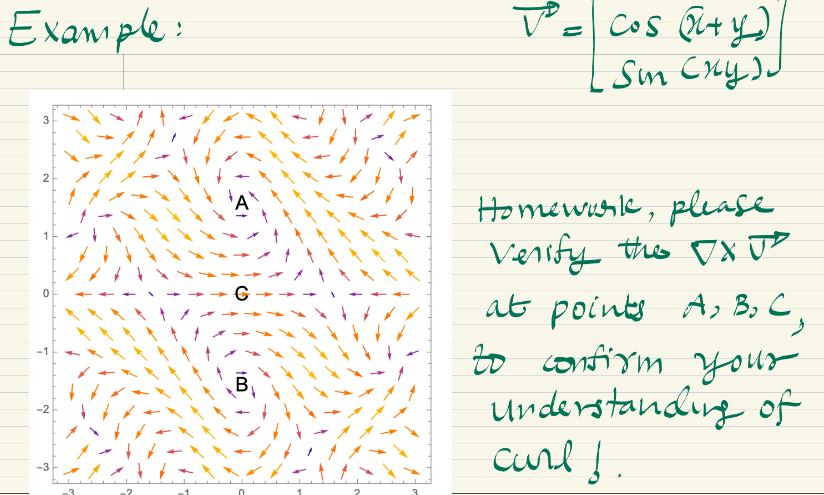 Example:
V = [cos (x+y)
sin (xy)]
3
2
1
0
-1
-2
-3
-3 -2 -1 0 1 2 3
A
C
B
Homework, please
verify the ∇×V
at points A, B, C,
to confirm your
understanding of
curl!.